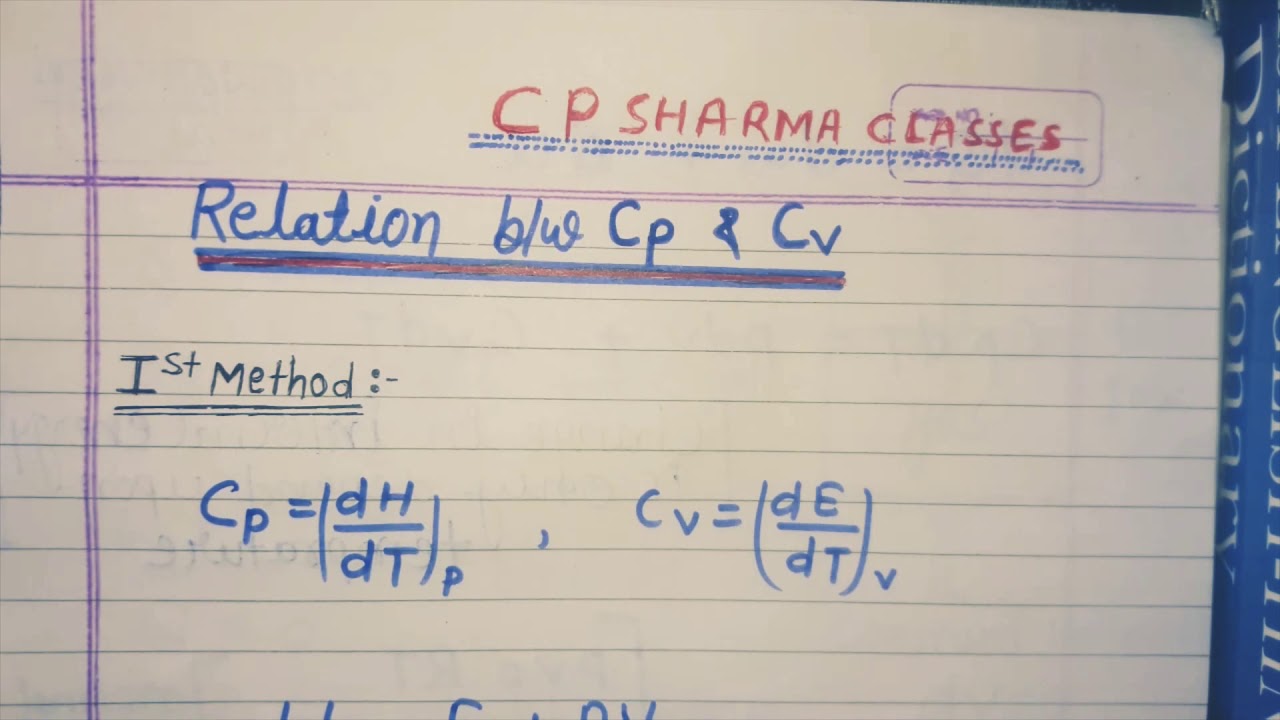 C P SHARMA CLASSES
Relation b/w Cp & Cv
Ist Method :-
Cp = (dH/dT)p , Cv = (dE/dT)v
Dictionary